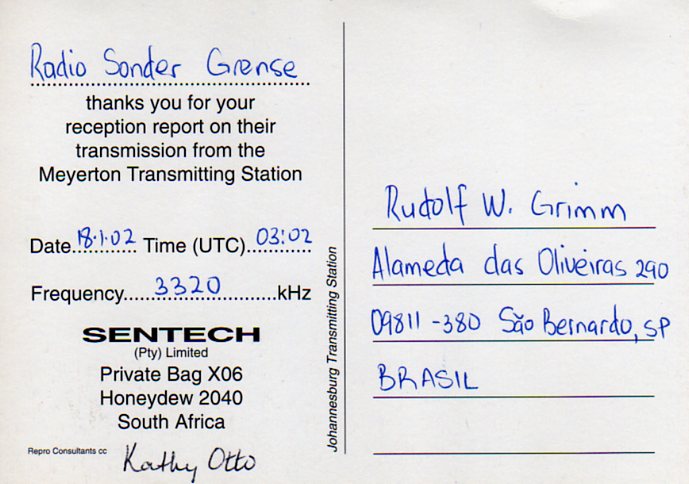 Radio Sonder Grense
thanks you for your
reception report on their
transmission from the
Meyerton Transmitting Station
Date 18.1.02 Time (UTC) 03:02
Frequency 3320 kHz
SENTECH
(Pty) Limited
Private Bag X06
Honeydew 2040
South Africa
Repro Consultants cc
Kathy Otto
Johannesburg Transmitting Station
Rudolf W. Grimm
Alameda das Oliveiras 290
09811-380 São Bernardo, SP
BRASIL